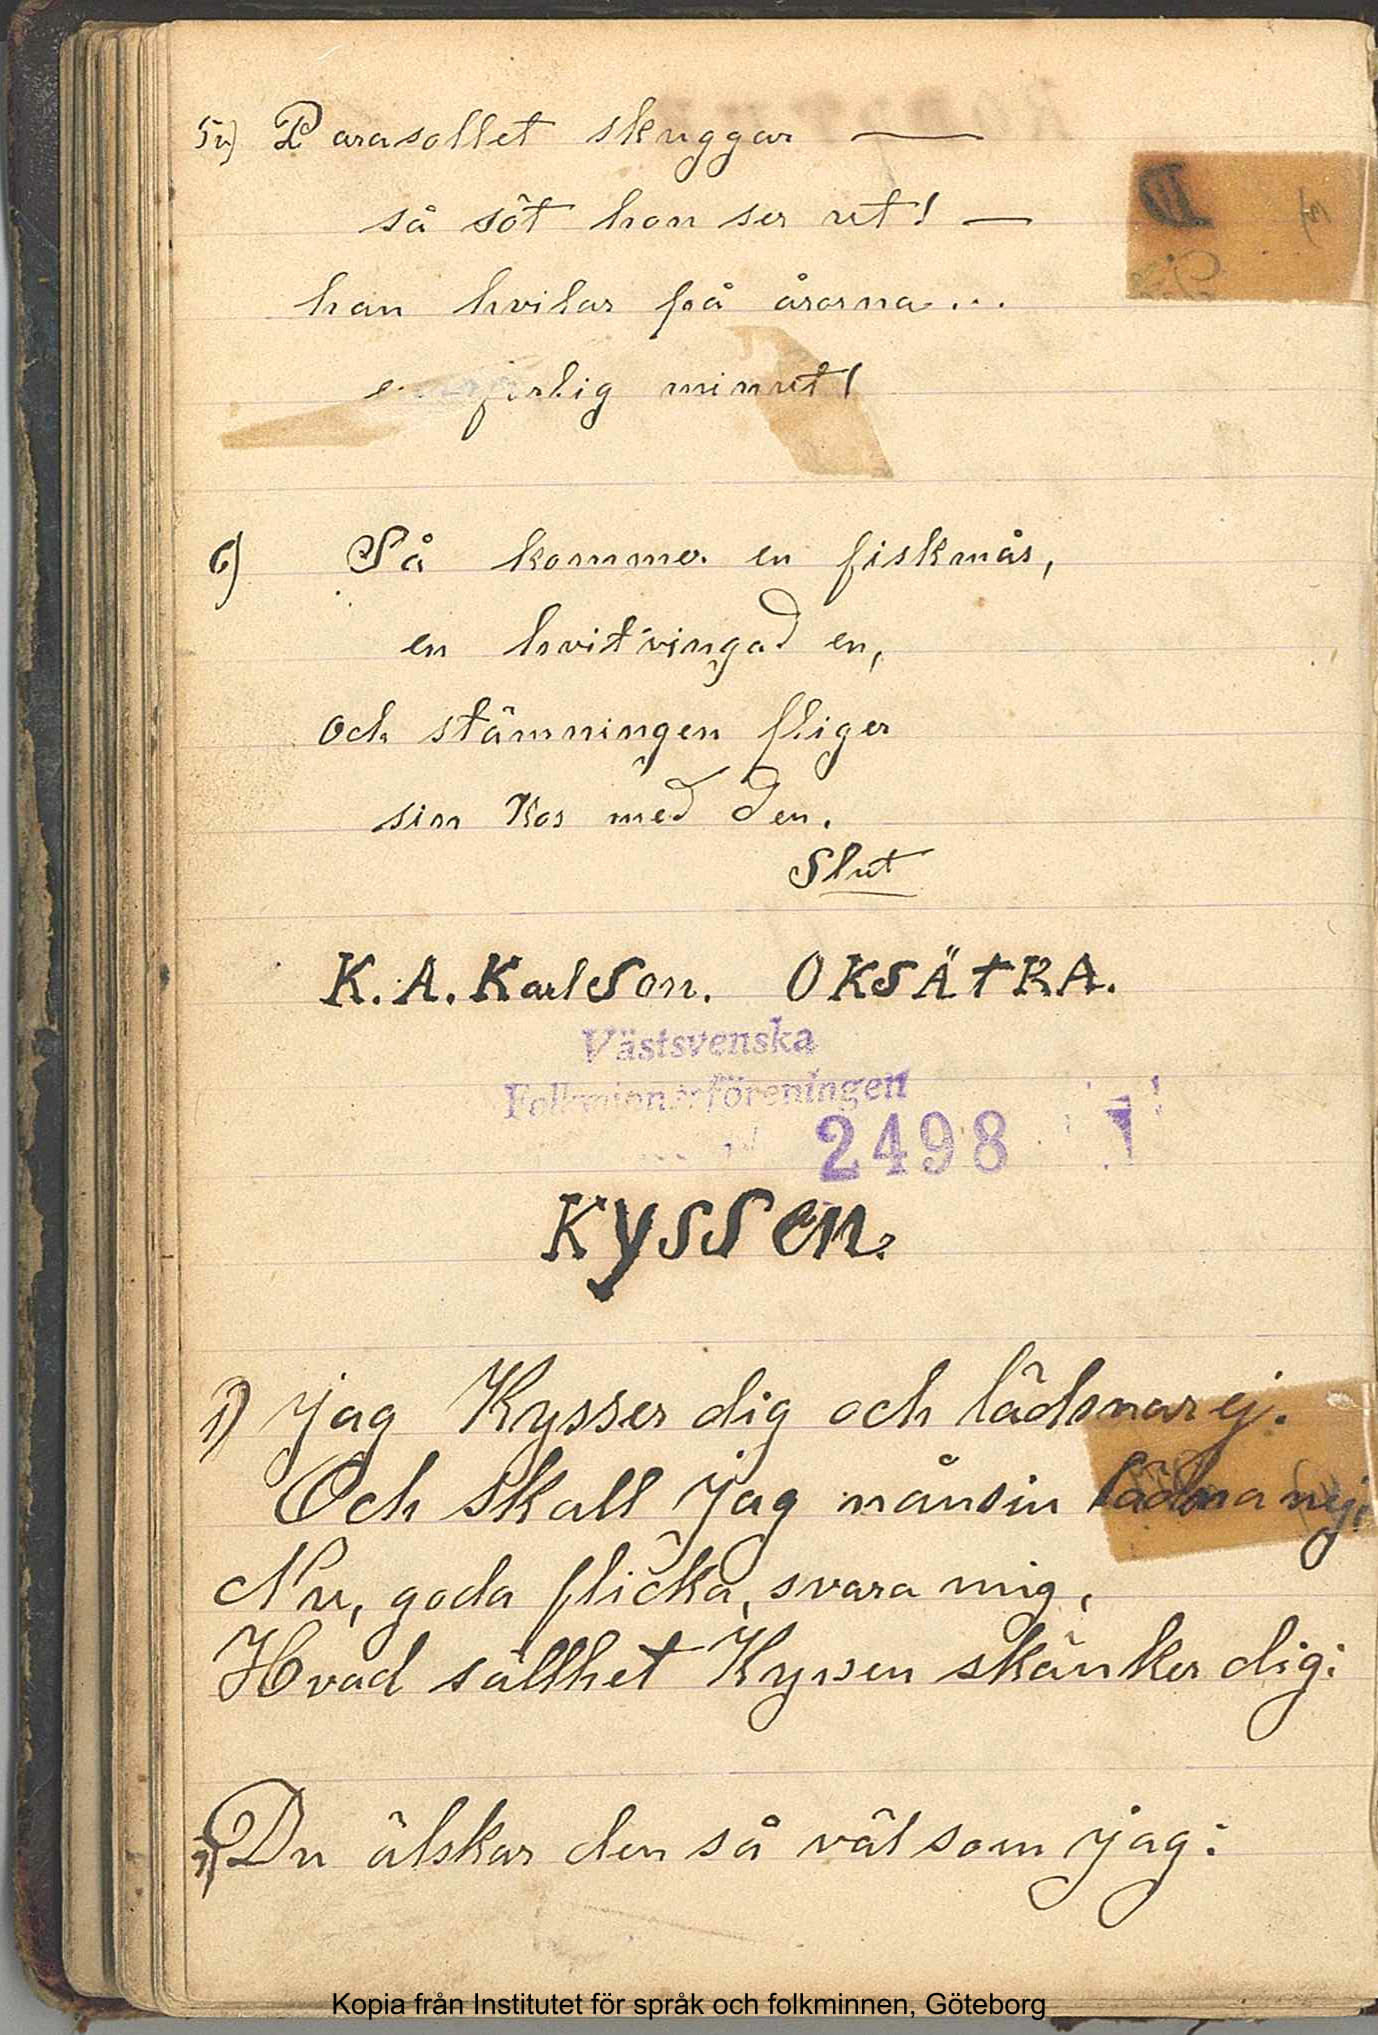 5) Parasollet skuggar —
så söt hon ser ut! —
han hvilar på årorna...
farlig minut!
6) Så kommer en fiskmås,
en hvitvingad en,
och stämningen fliger
sin Kos med den.
Slut
K. A. Karlson. OKSÄTRA.
Västsvenska
Folkminnesföreningen
2498
Kyssen.
1) jag Kysser dig och lädsnar ej.
Och skall jag nånsin lädsna nej,
Nu, goda flicka, svara mig,
Hvad sällhet Kyssen skänker dig:
2) Du älskar den så väl som jag:
Kopia från Institutet för språk och folkminnen, Göteborg